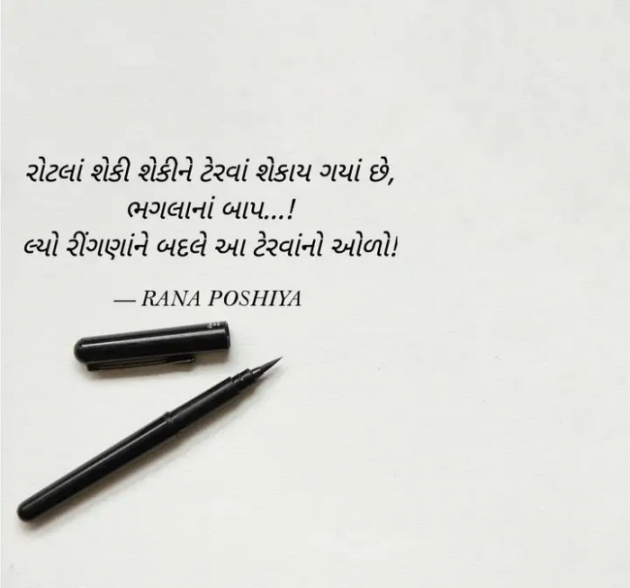 રોટલાં શેકી શેકીને ટેરવાં શેકાય ગયાં છે,
ભગલાનાં બાપ...!
લ્યો રીંગણાંને બદલે આ ટેરવાંનો ઓળો!
— RANA POSHIYA